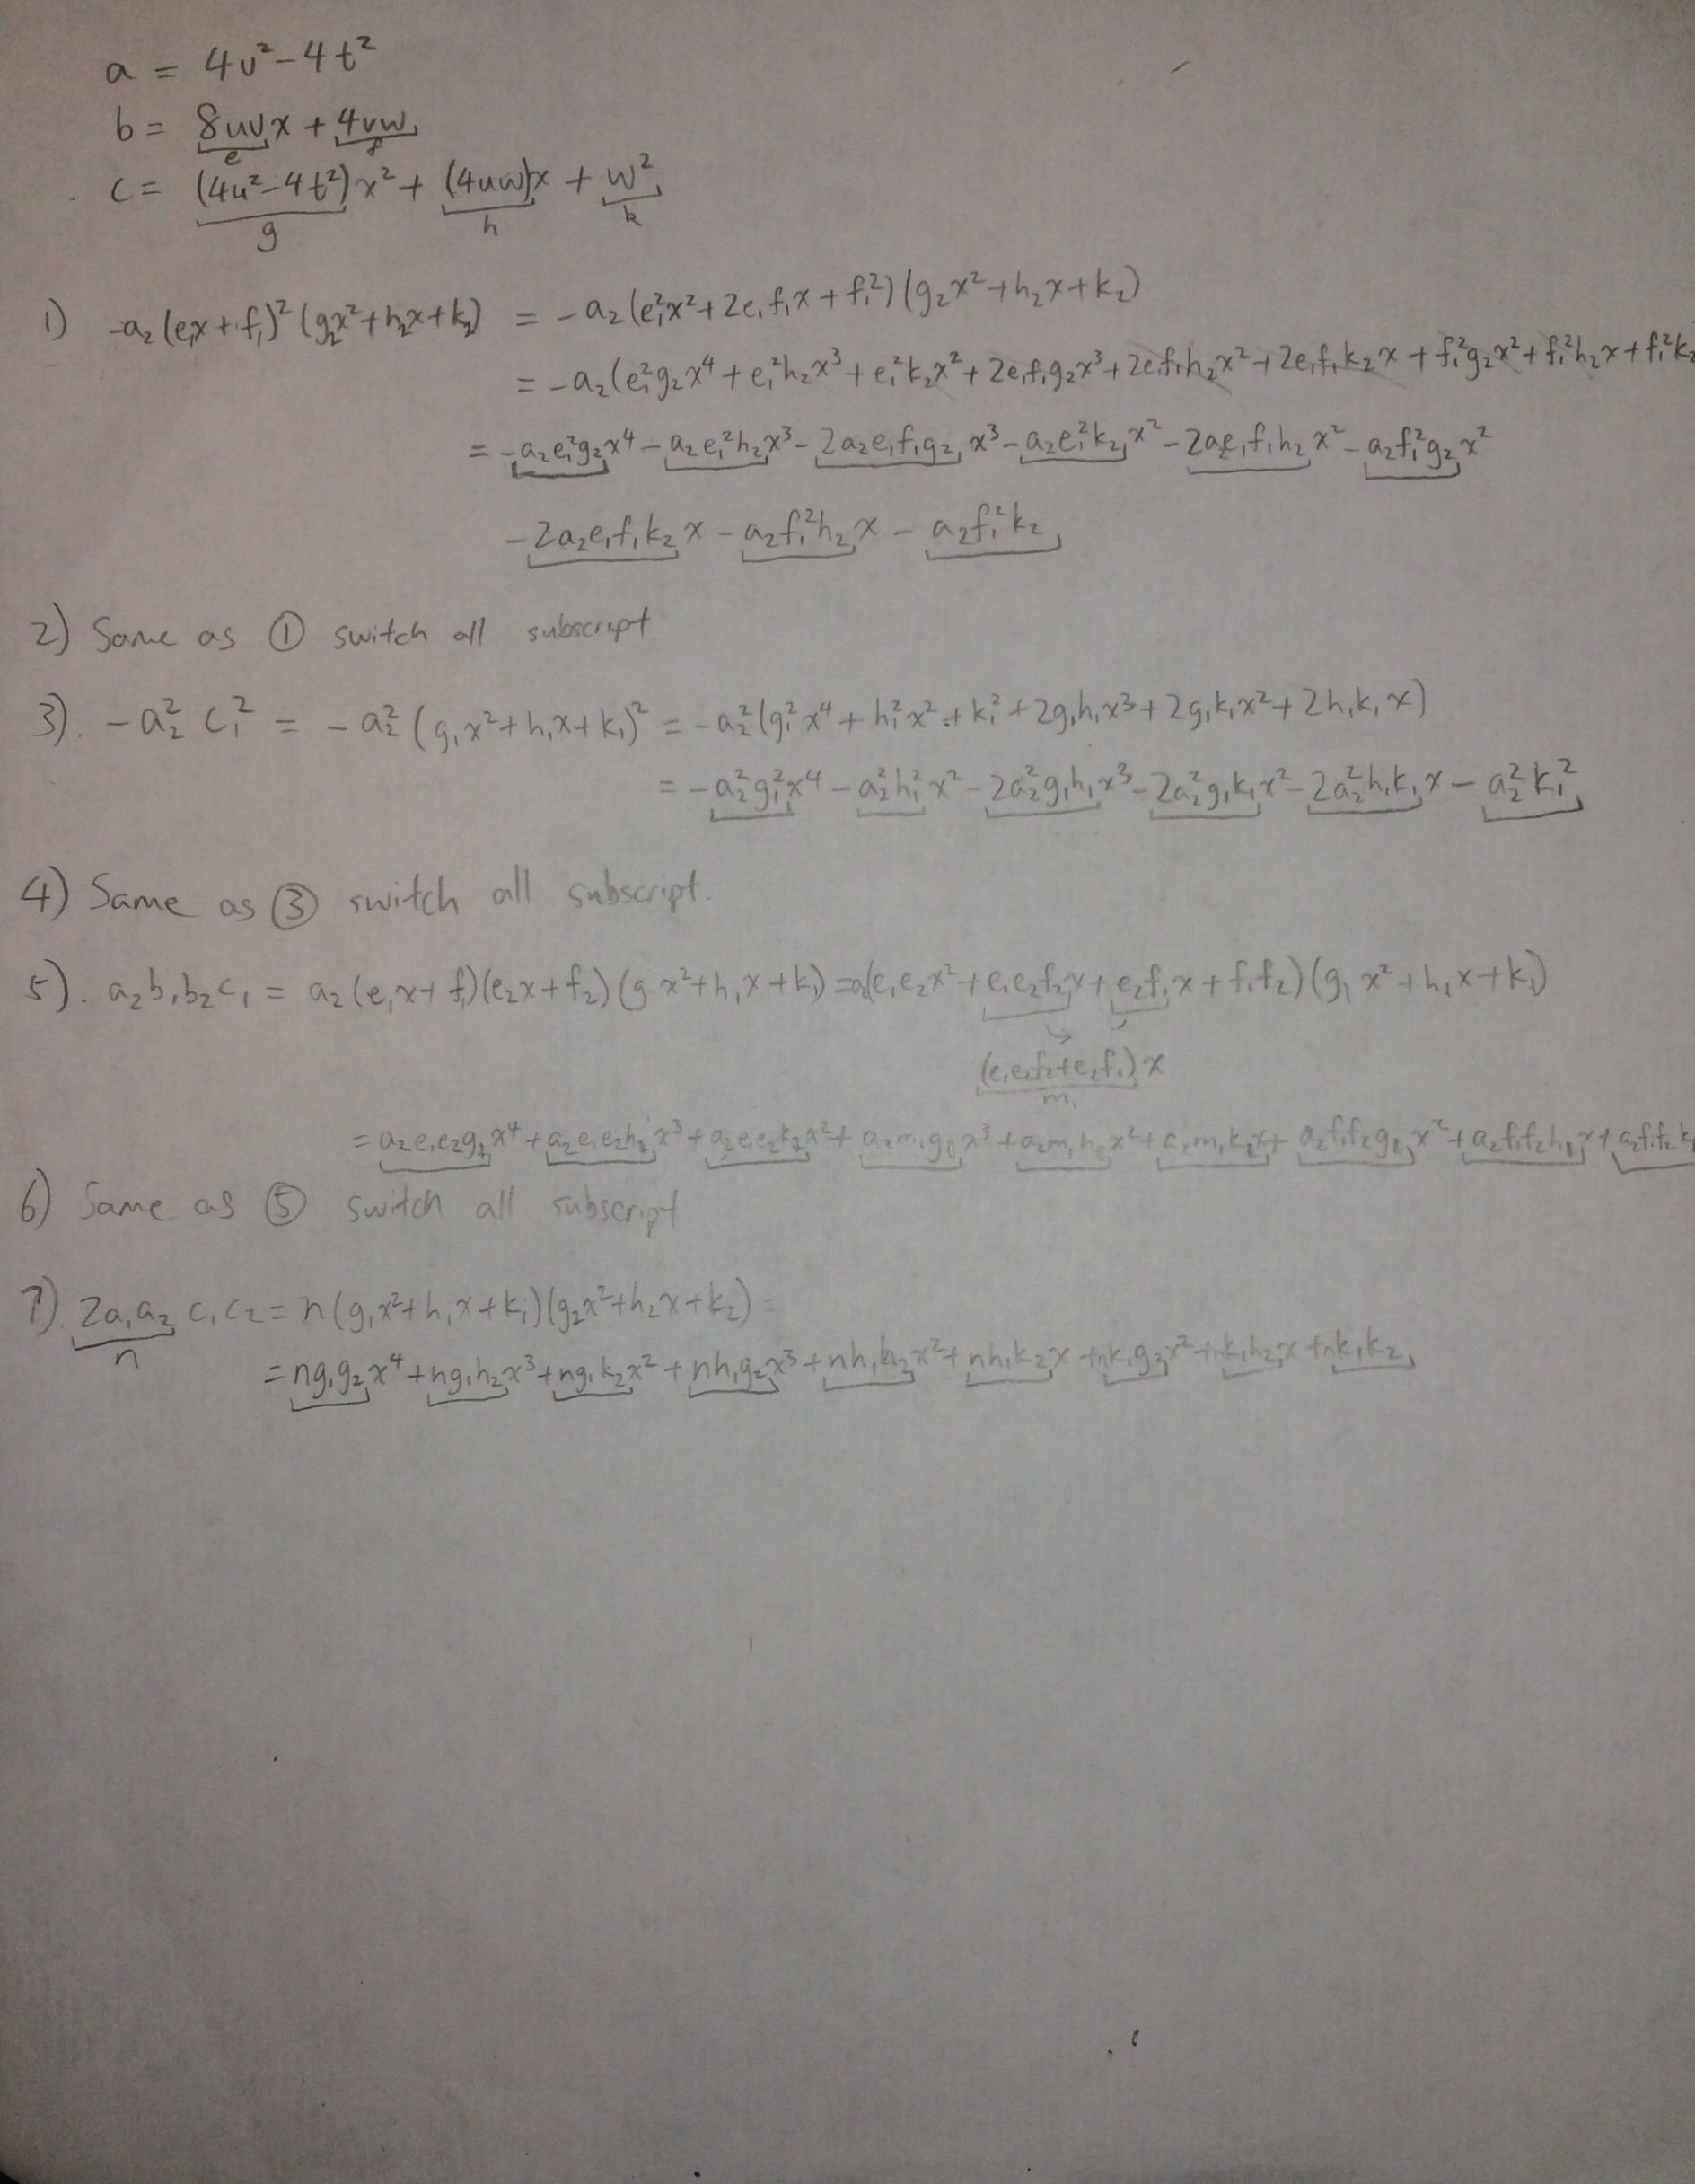 a = 4v² - 4t²
b = 8uvx + 4vw
e f
c = (4u² - 4t²)x² + (4uw)x + w²
g h k
1) -a₂(e₁x + f₁)²(g₂x² + h₂x + k₂) = -a₂(e₁²x² + 2e₁f₁x + f₁²)(g₂x² + h₂x + k₂)
= -a₂(e₁²g₂x⁴ + e₁²h₂x³ + e₁²k₂x² + 2e₁f₁g₂x³ + 2e₁f₁h₂x² + 2e₁f₁k₂x + f₁²g₂x² + f₁²h₂x + f₁²k₂
= -a₂e₁²g₂x⁴ - a₂e₁²h₂x³ - 2a₂e₁f₁g₂x³ - a₂e₁²k₂x² - 2a₂e₁f₁h₂x² - a₂f₁²g₂x²
- 2a₂e₁f₁k₂x - a₂f₁²h₂x - a₂f₁²k₂
2) Same as ① switch all subscript
3). -a₂² c₁² = -a₂²(g₁x² + h₁x + k₁)² = -a₂²(g₁²x⁴ + h₁²x² + k₁² + 2g₁h₁x³ + 2g₁k₁x² + 2h₁k₁x)
= -a₂²g₁²x⁴ - a₂²h₁²x² - 2a₂²g₁h₁x³ - 2a₂²g₁k₁x² - 2a₂²h₁k₁x - a₂²k₁²
4) Same as ③ switch all subscript.
5). a₂b₁b₂c₁ = a₂(e₁x + f₁)(e₂x + f₂)(g x² + h₁x + k₁) = a₂(e₁e₂x² + e₁e₂f₂x + e₂f₁x + f₁f₂)(g₁x² + h₁x + k₁)
(e₁e₂f₂ + e₂f₁)x
m₁
= a₂e₁e₂g₁x⁴ + a₂e₁e₂h₁x³ + a₂e₁e₂k₁x² + a₂m₁g₁x³ + a₂m₁h₁x² + a₂m₁k₁x + a₂f₁f₂g₁x² + a₂f₁f₂h₁x + a₂f₁f₂k₁
6) Same as ⑤ switch all subscript
7). 2a₁a₂ c₁c₂ = n(g₁x² + h₁x + k₁)(g₂x² + h₂x + k₂) =
n
= ng₁g₂x⁴ + ng₁h₂x³ + ng₁k₂x² + nh₁g₂x³ + nh₁h₂x² + nh₁k₂x + nk₁g₂x² + nk₁h₂x + nk₁k₂